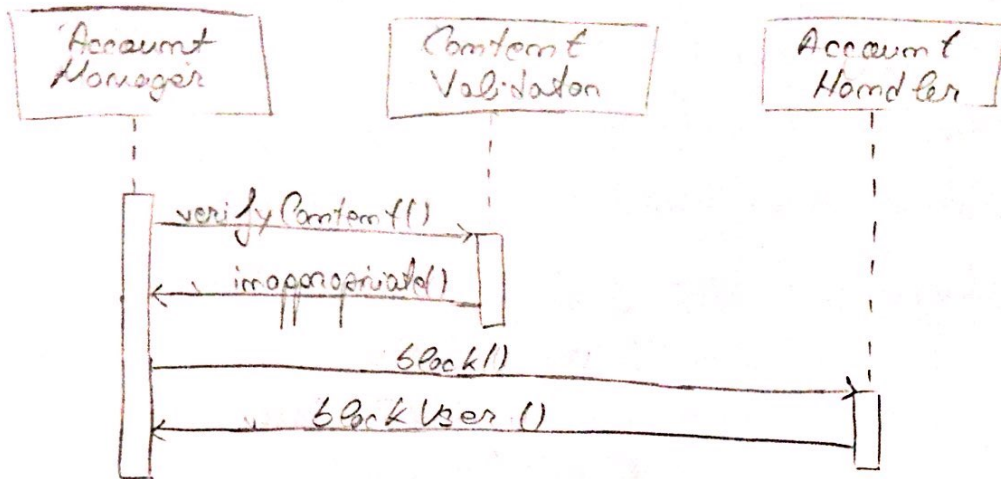 Account
Manager
Content
Validator
Account
Handler
verifyContent()
inappropriate()
block()
blockUser()